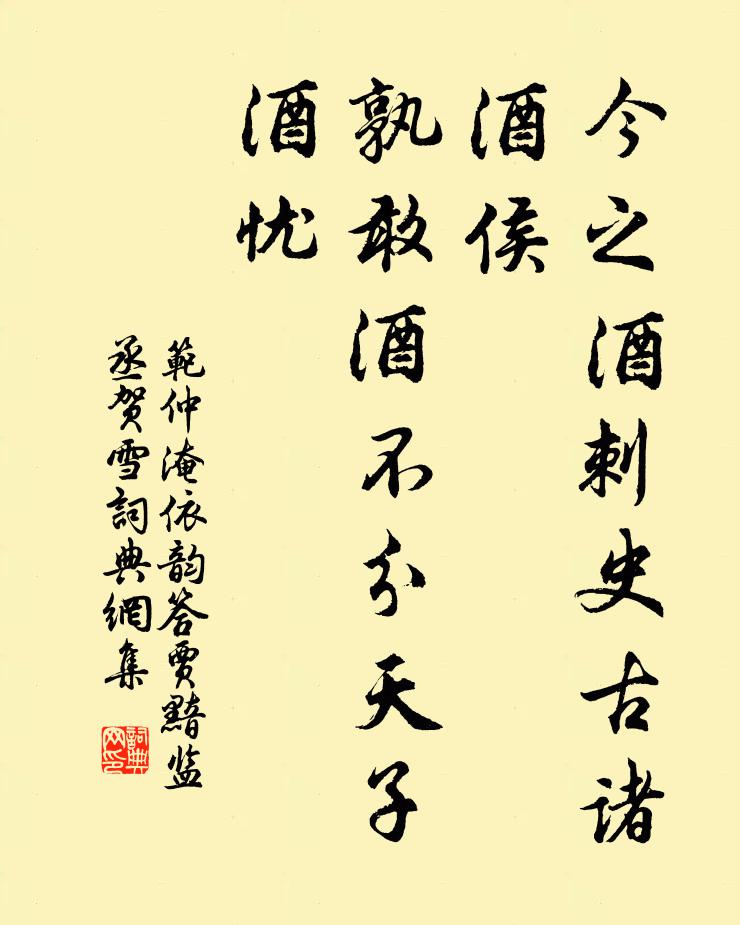 今之酒刺史古诸
酒侯
孰敢酒不分天子
酒忧
範仲淹依韵答贾黯监
丞贺雪詞典網集
詞典
网印